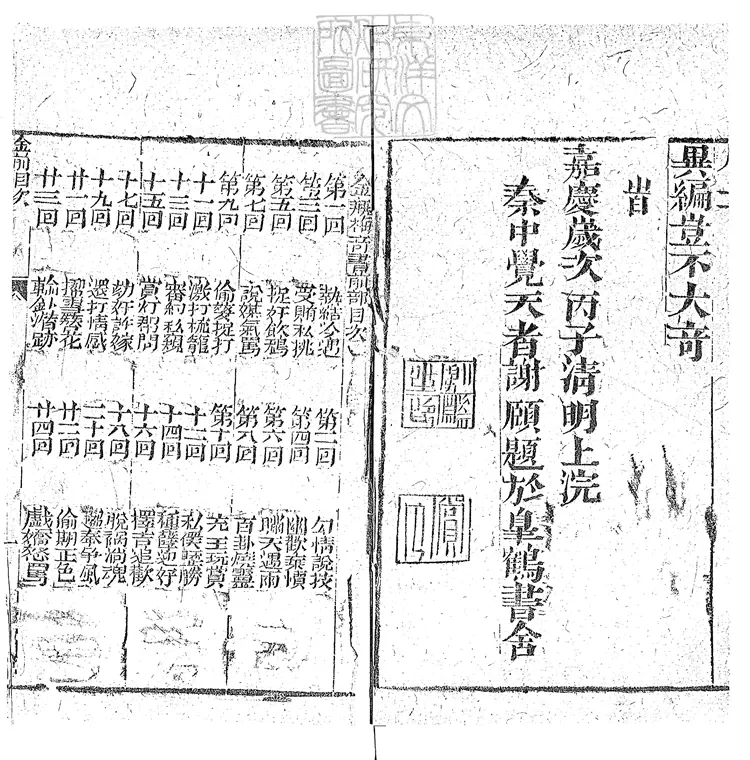 異編豈不大奇
旹
嘉慶歲次丙子清明上浣
秦中覺天者謝頤題於皐鶴書舍
東洋文
化研究
所圖書
金瓶梅奇書前部目次
第一回 熱結冷遇 第二回 勾情說技
第三回 受賄私挑 第四回 幽歡義憤
第五回 捉奸飲鴆 第六回 瞞天遇雨
第七回 說媒氣罵 第八回 卦燒靈
第九回 偷娶打 第十回 充王玩賞
十一回 激打梳籠 十二回 私僕魘勝
十三回 約私 十四回 種孽迎奸
十五回 賞 十六回 擇吉追歡
十七回 劾奸許嫁 十八回 脫禍消魂
十九回 邏打情感 二十回 趨奉争風
廿一回 掃雪簪花 廿二回 偷期正色
廿三回 廿四回 戲嬌怒罵
金前目次